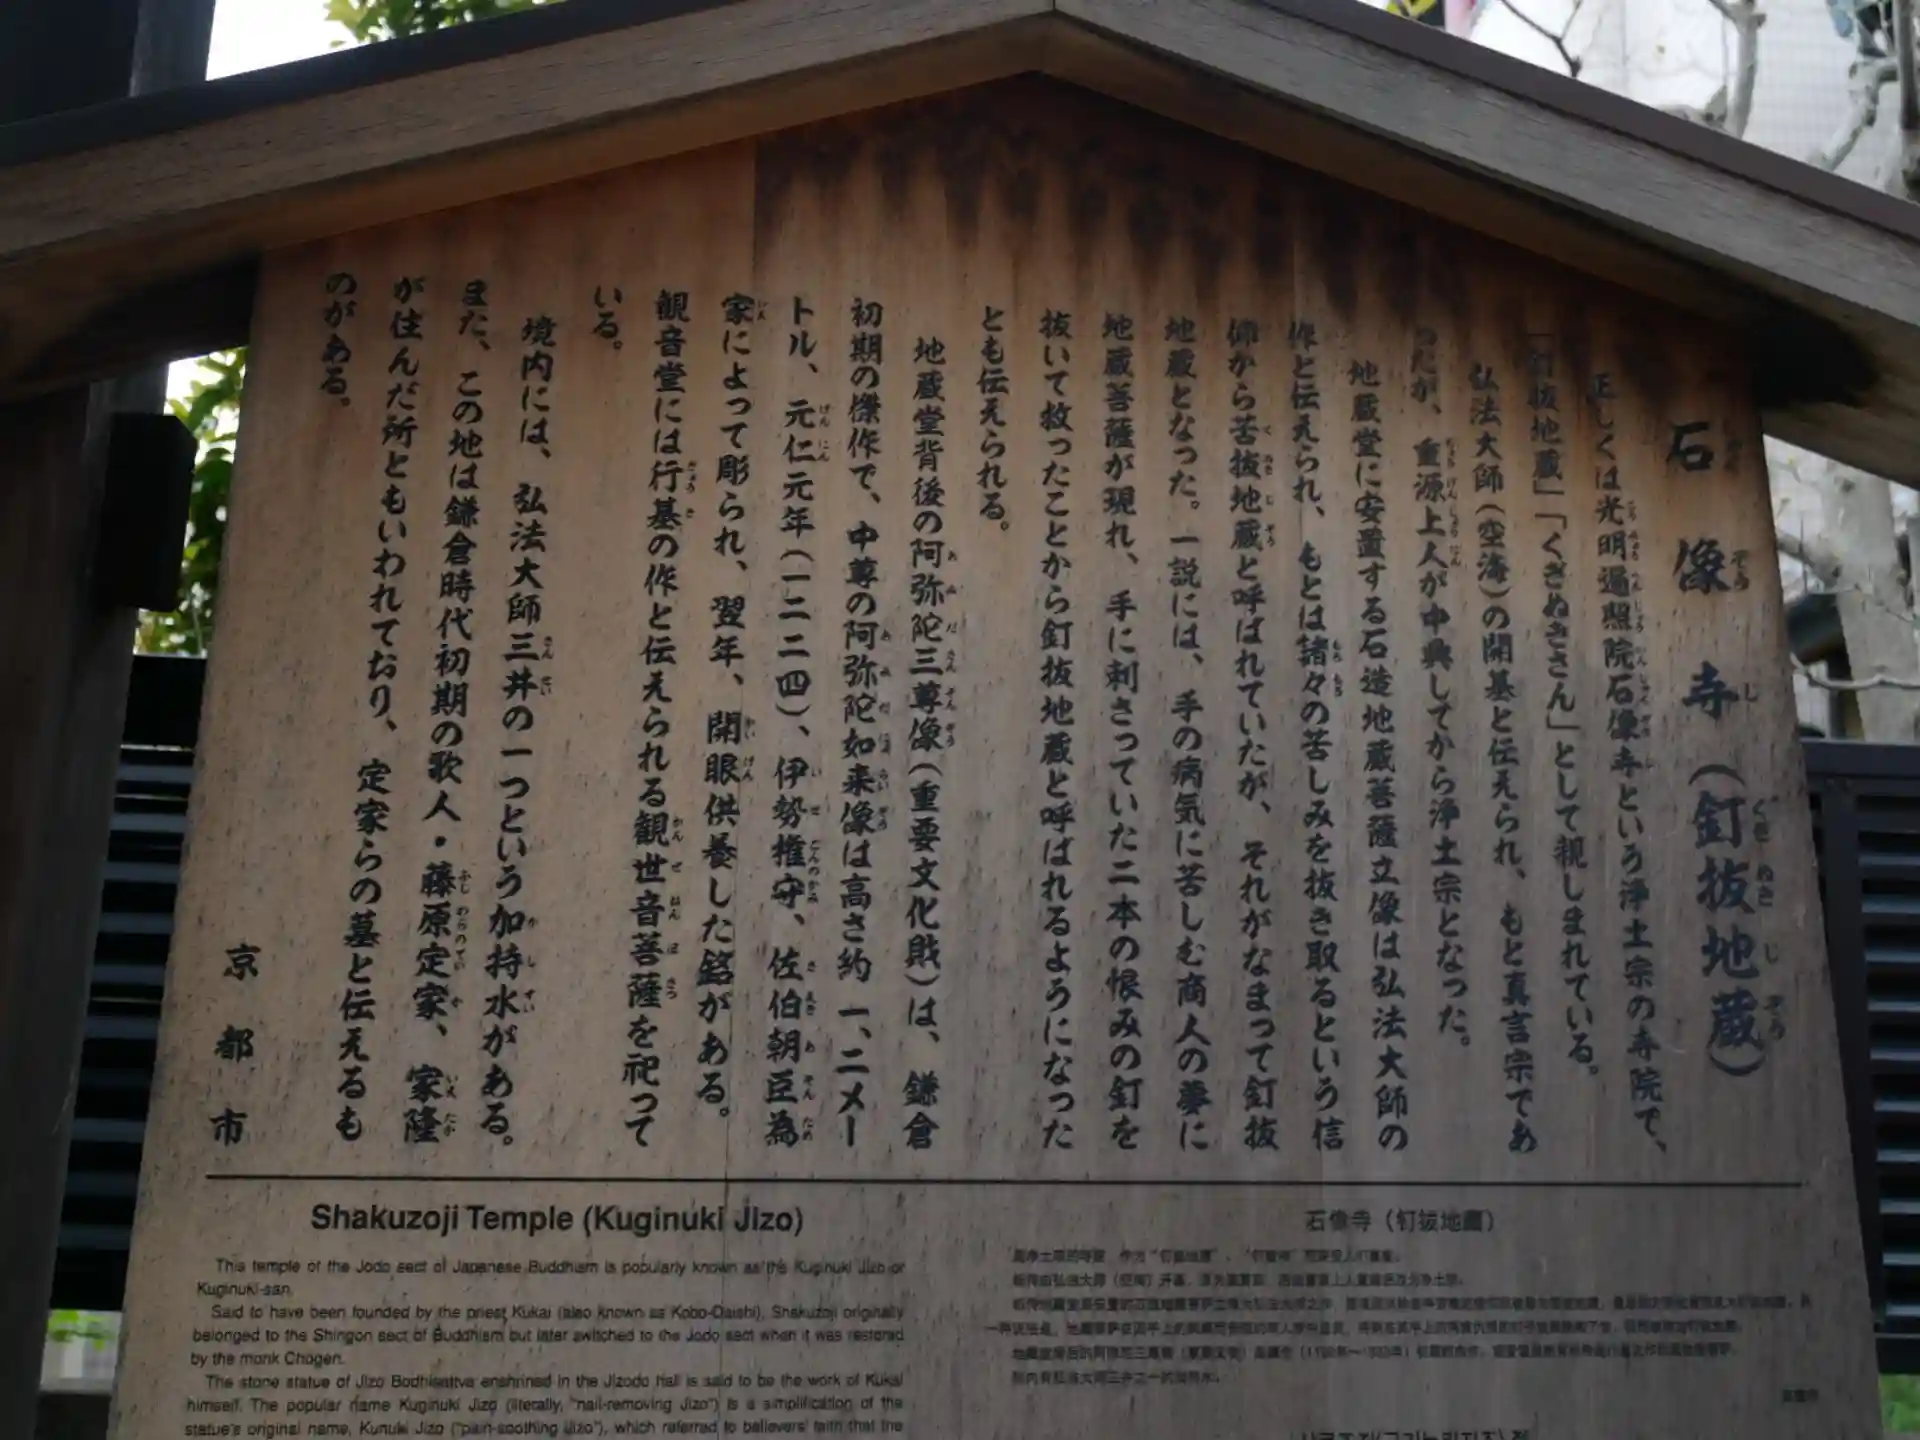 石像寺(釘抜地蔵)
正しくは光明遍照院石像寺という浄土宗の寺院で、
「釘抜地蔵」「くぎぬきさん」として親しまれている。
弘法大師(空海)の開基と伝えられ、もと真言宗であ
ったが、重源上人が中興してから浄土宗となった。
地蔵堂に安置する石造地蔵菩薩立像は弘法大師の
作と伝えられ、もとは諸々の苦しみを抜き取るという信
仰から苦抜地蔵と呼ばれていたが、それがなまって釘抜
地蔵となった。一説には、手の病気に苦しむ商人の夢に
地蔵菩薩が現れ、手に刺さっていた二本の恨みの釘を
抜いて救ったことから釘抜地蔵と呼ばれるようになった
とも伝えられる。
地蔵堂背後の阿弥陀三尊像(重要文化財)は、鎌倉
初期の傑作で、中尊の阿弥陀如来像は高さ約一、二メー
トル、元仁元年(一二二四)、伊勢権守、佐伯朝臣為
家によって彫られ、翌年、開眼供養した銘がある。
観音堂には行基の作と伝えられる観世音菩薩を祀って
いる。
境内には、弘法大師三井の一つという加持水がある。
また、この地は鎌倉時代初期の歌人・藤原定家、家隆
が住んだ所ともいわれており、定家らの墓と伝えるも
のがある。
京都市
Shakuzoji Temple (Kuginuki Jizo)
This temple of the Jodo sect of Japanese Buddhism is popularly known as the Kuginuki Jizo or
Kuginuki-san.
Said to have been founded by the priest Kukai (also known as Kobo-Daishi), Shakuzoji originally
belonged to the Shingon sect of Buddhism but later switched to the Jodo sect when it was restored
by the monk Chogen.
The stone statue of Jizo Bodhisattva enshrined in the Jizodo hall is said to be the work of Kukai
himself. The popular name Kuginuki Jizo (literally, "nail-removing Jizo") is a simplification of the
statue's original name, Kunuki Jizo ("pain-soothing Jizo"), which referred to believers' faith that the
石像寺(钉拔地藏)